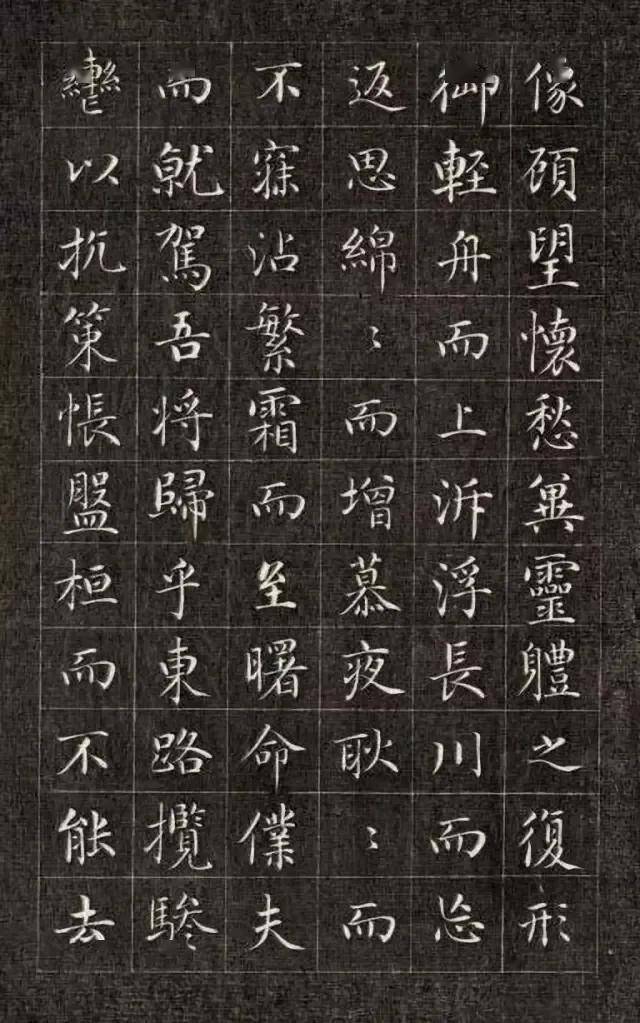 像頋望懷愁兾靈體之復形
御輕舟而上泝浮長川而忘
返思綿〻而增慕夜耿〻而
不寐沾繁霜而至曙命僕夫
而就駕吾将歸乎東路攬騑
轡以抗策悵盤桓而不能去